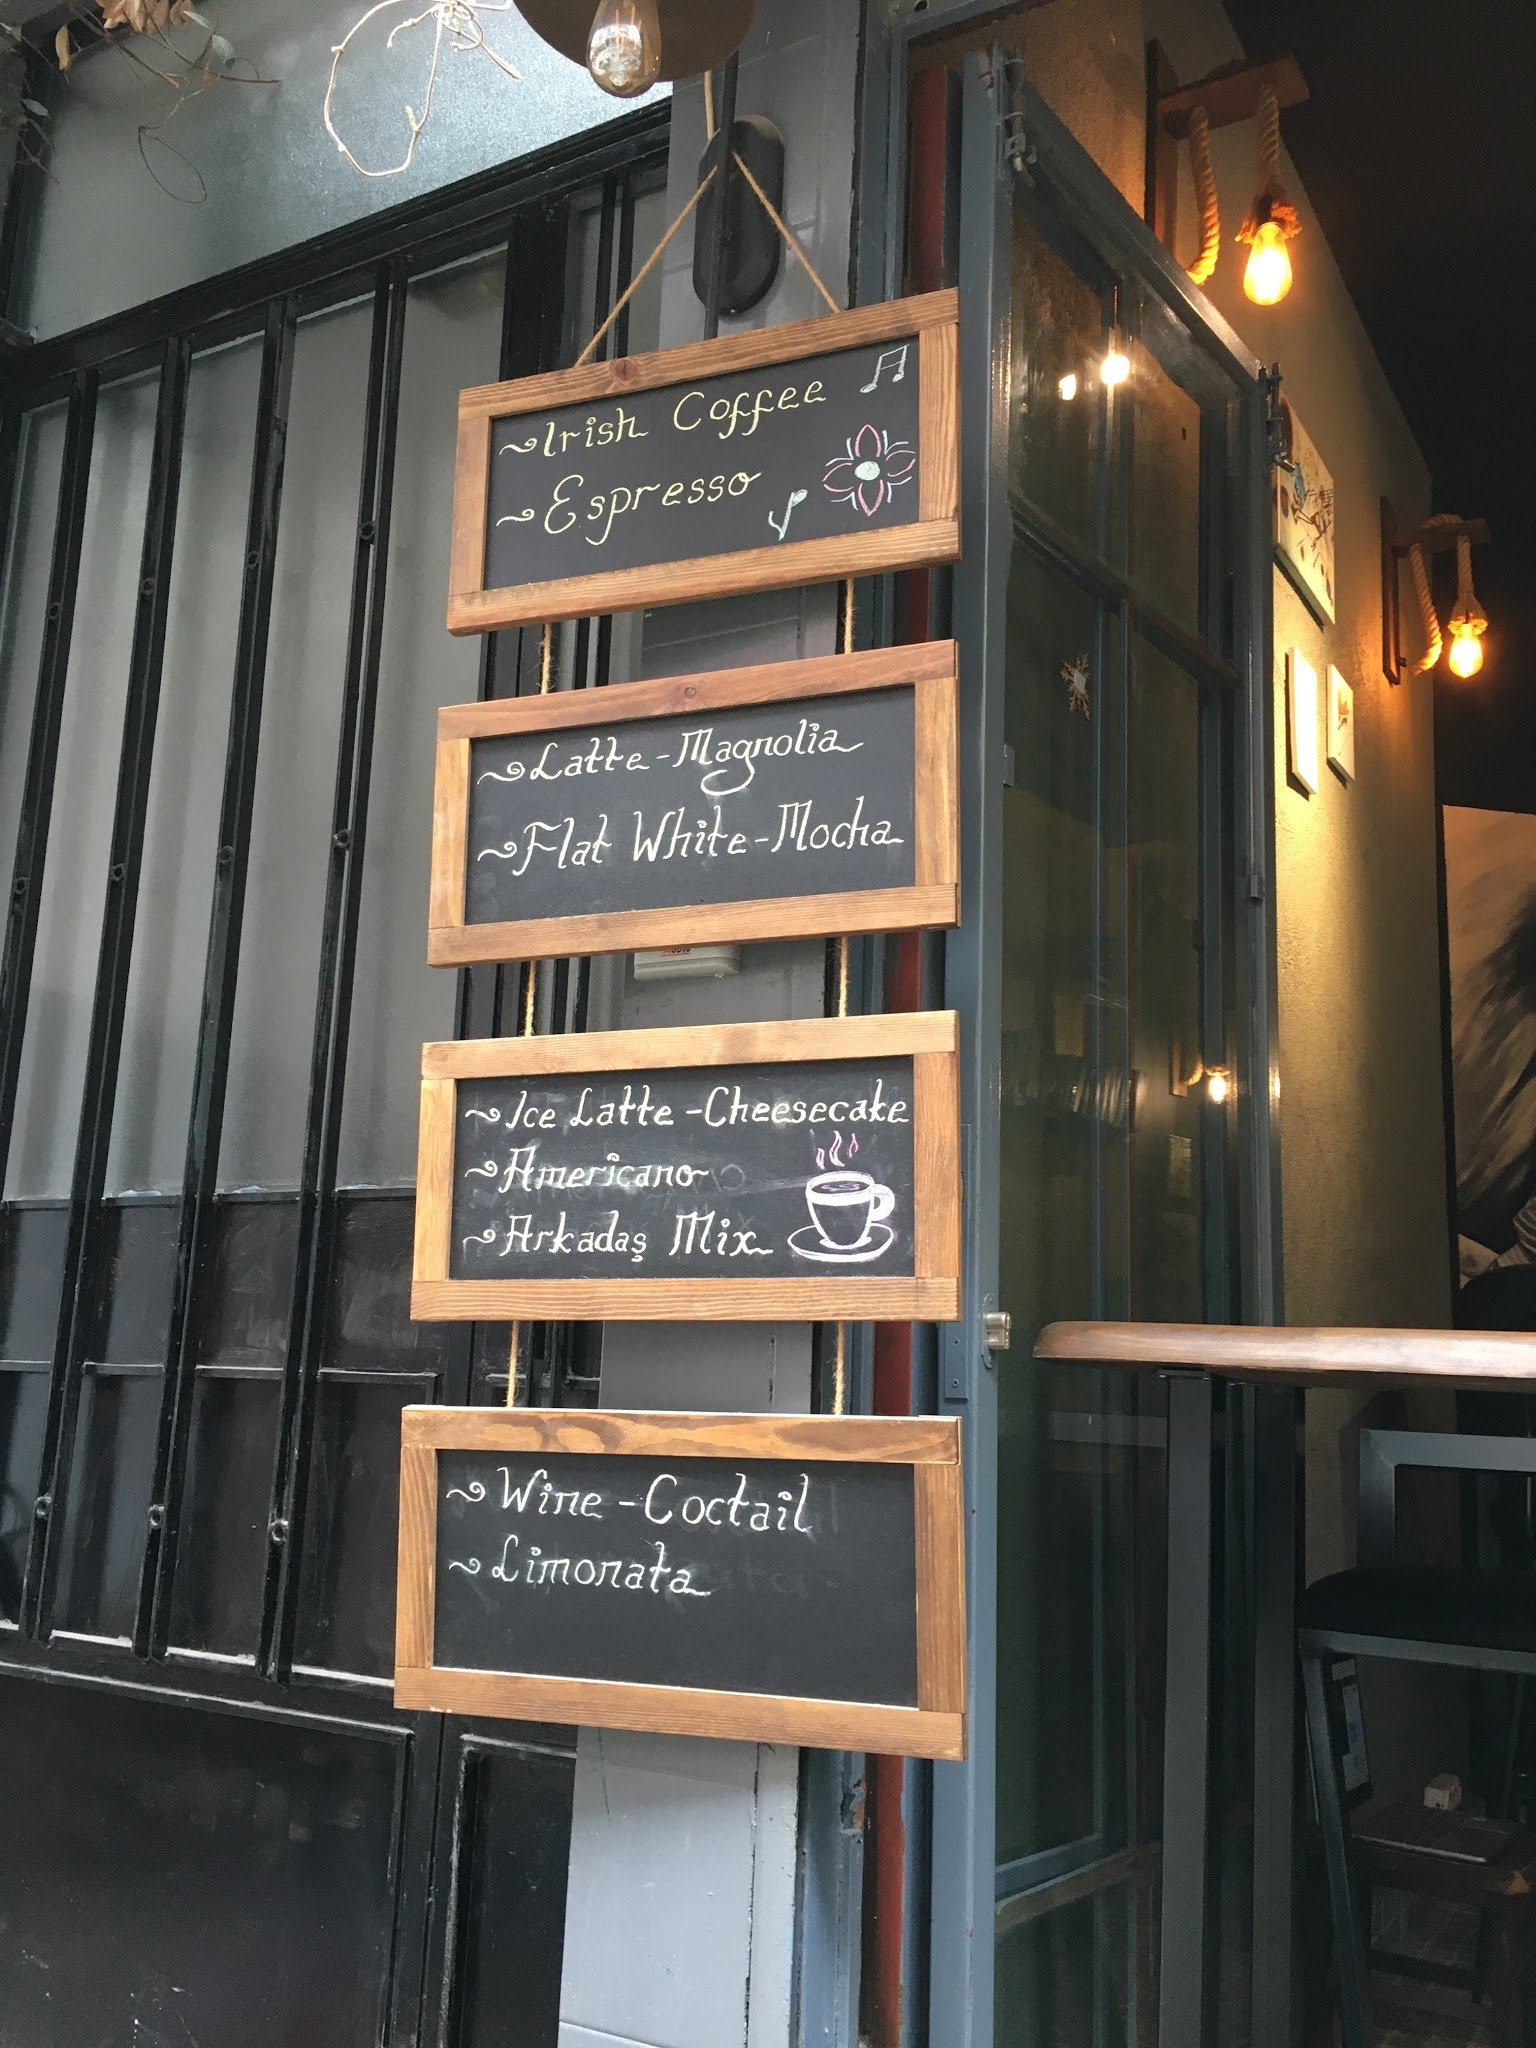 ~Irish Coffee
~Espresso
~Latte-Magnolia
~Flat White-Mocha
~Ice Latte-Cheesecake
~Americano
~Arkadaş Mix
~Wine-Coctail
~Limonata